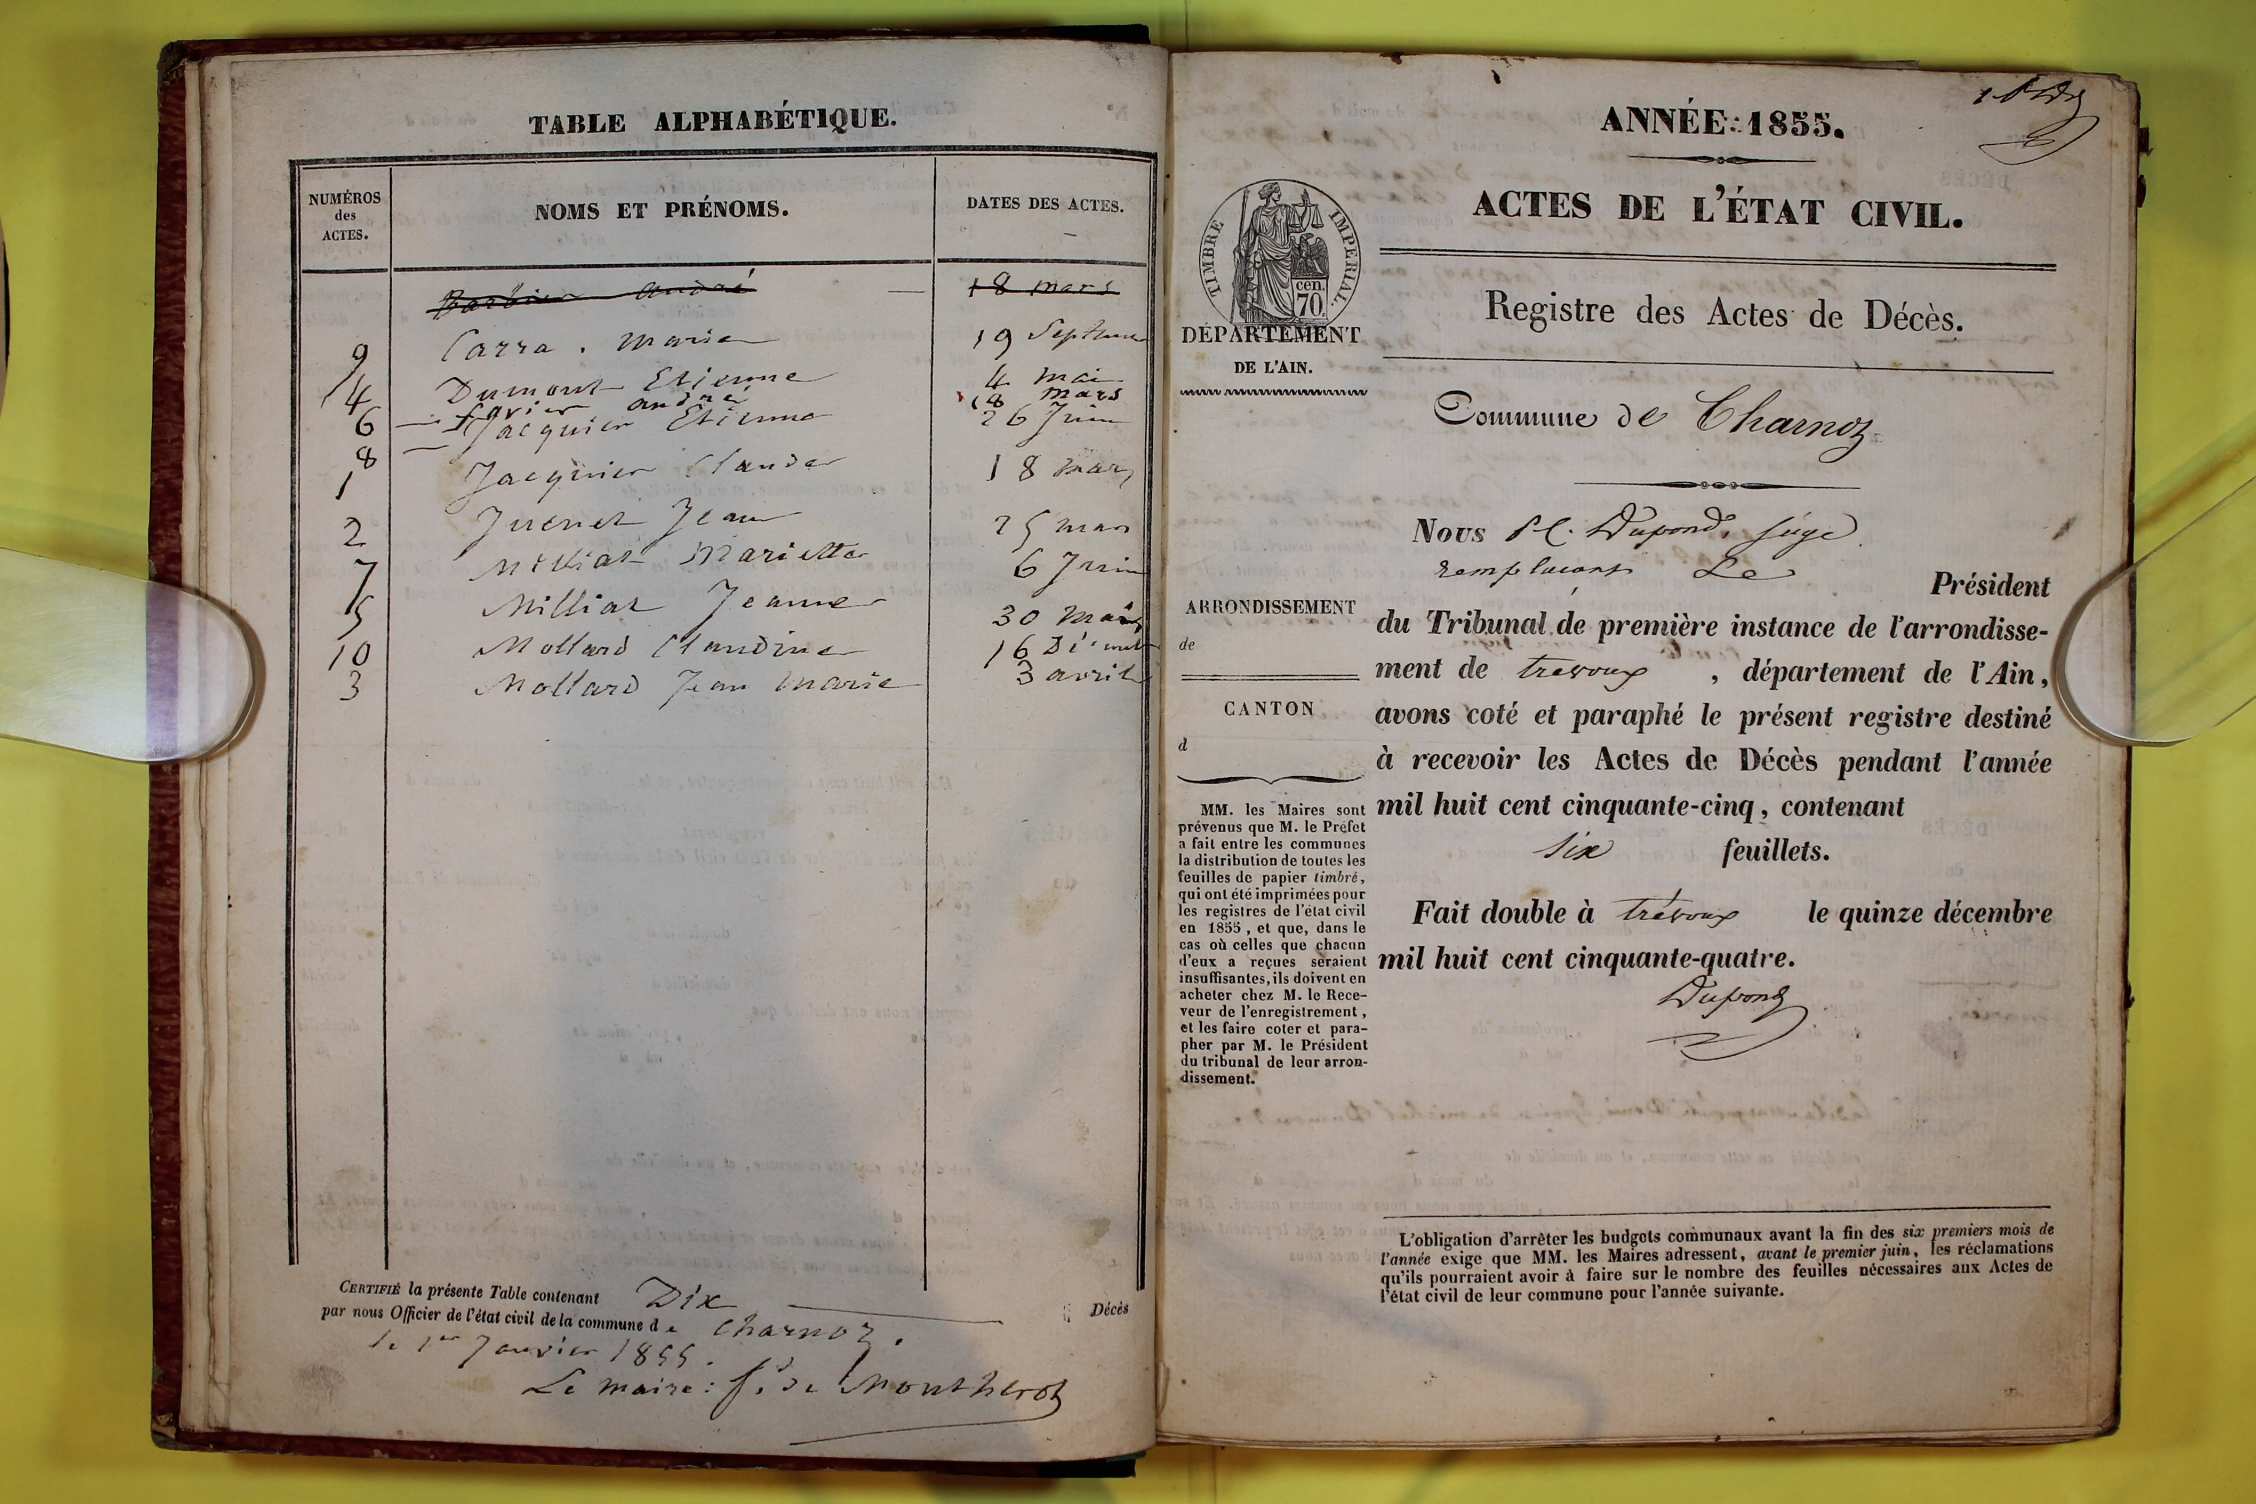 TABLE ALPHABÉTIQUE.
NUMÉROS des ACTES. NOMS ET PRÉNOMS. DATES DES ACTES.
Barbier André 18 mars
9 Carra. Marie 19 Septembre
4 Dumont Etienne 4 mai
6 favier andré 18 mars
8 Jacquier Etienne 26 Juin
1 Jacquier Claude 18 mars
2 Juenet Jean 25 mars
7 Milliat Mariette 6 Juin
5 Milliat Jeanne 30 mai
10 Mollard Claudine 16 Décembre
3 Mollard Jean Marie 3 avril
CERTIFIÉ la présente Table contenant Dix Décès
par nous Officier de l'état civil de la commune de Charnoz.
le 1er Janvier 1855.
Le maire: f. de Montherot
ANNÉE 1855.
ACTES DE L'ÉTAT CIVIL.
TIMBRE IMPERIAL.
cen.
70.
DÉPARTEMENT
DE L'AIN.
Registre des Actes de Décès.
Commune de Charnoz
Nous Dupond, juge
remplaçant Le Président
du Tribunal de première instance de l'arrondisse-
ment de trevoux, département de l'Ain,
avons coté et paraphé le présent registre destiné
à recevoir les Actes de Décès pendant l'année
mil huit cent cinquante-cinq, contenant
six feuillets.
Fait double à trévoux le quinze décembre
mil huit cent cinquante-quatre.
Dupond
ARRONDISSEMENT
de
CANTON
d
MM. les Maires sont
prévenus que M. le Préfet
a fait entre les communes
la distribution de toutes les
feuilles de papier timbré,
qui ont été imprimées pour
les registres de l'état civil
en 1855, et que, dans le
cas où celles que chacun
d'eux a reçues seraient
insuffisantes, ils doivent en
acheter chez M. le Rece-
veur de l'enregistrement,
et les faire coter et para-
pher par M. le Président
du tribunal de leur arron-
dissement.
L'obligation d'arrêter les budgets communaux avant la fin des six premiers mois de
l'année exige que MM. les Maires adressent, avant le premier juin, les réclamations
qu'ils pourraient avoir à faire sur le nombre des feuilles nécessaires aux Actes de
l'état civil de leur commune pour l'année suivante.